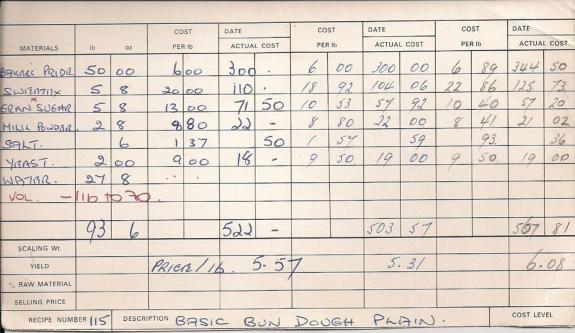 COST DATE COST DATE COST DATE
MATERIALS lb oz PER lb ACTUAL COST PER lb ACTUAL COST PER lb ACTUAL COST
BAKERS PRIDE 50 00 6 00 300 · 6 00 300 00 6 89 344 50
5 8 20 00 110 · 18 92 104 06 22 86 125 73
GRAN SUGAR 5 8 13 00 71 50 10 53 57 92 10 40 57 20
MILK POWDER 2 8 8 80 22 - 8 80 22 00 8 41 21 02
SALT. 6 1 37 50 1 57 59 93 36
YEAST. 2 00 9 00 18 - 9 50 19 00 9 50 19 00
WATER. 27 8
VOL - 1lb to 70.
93 6 522 - 503 57 567 81
SCALING Wt.
YIELD PRICE/lb. 5.57 5.31 6.08
RAW MATERIAL
SELLING PRICE
RECIPE NUMBER 115 DESCRIPTION BASIC BUN DOUGH PLAIN. COST LEVEL